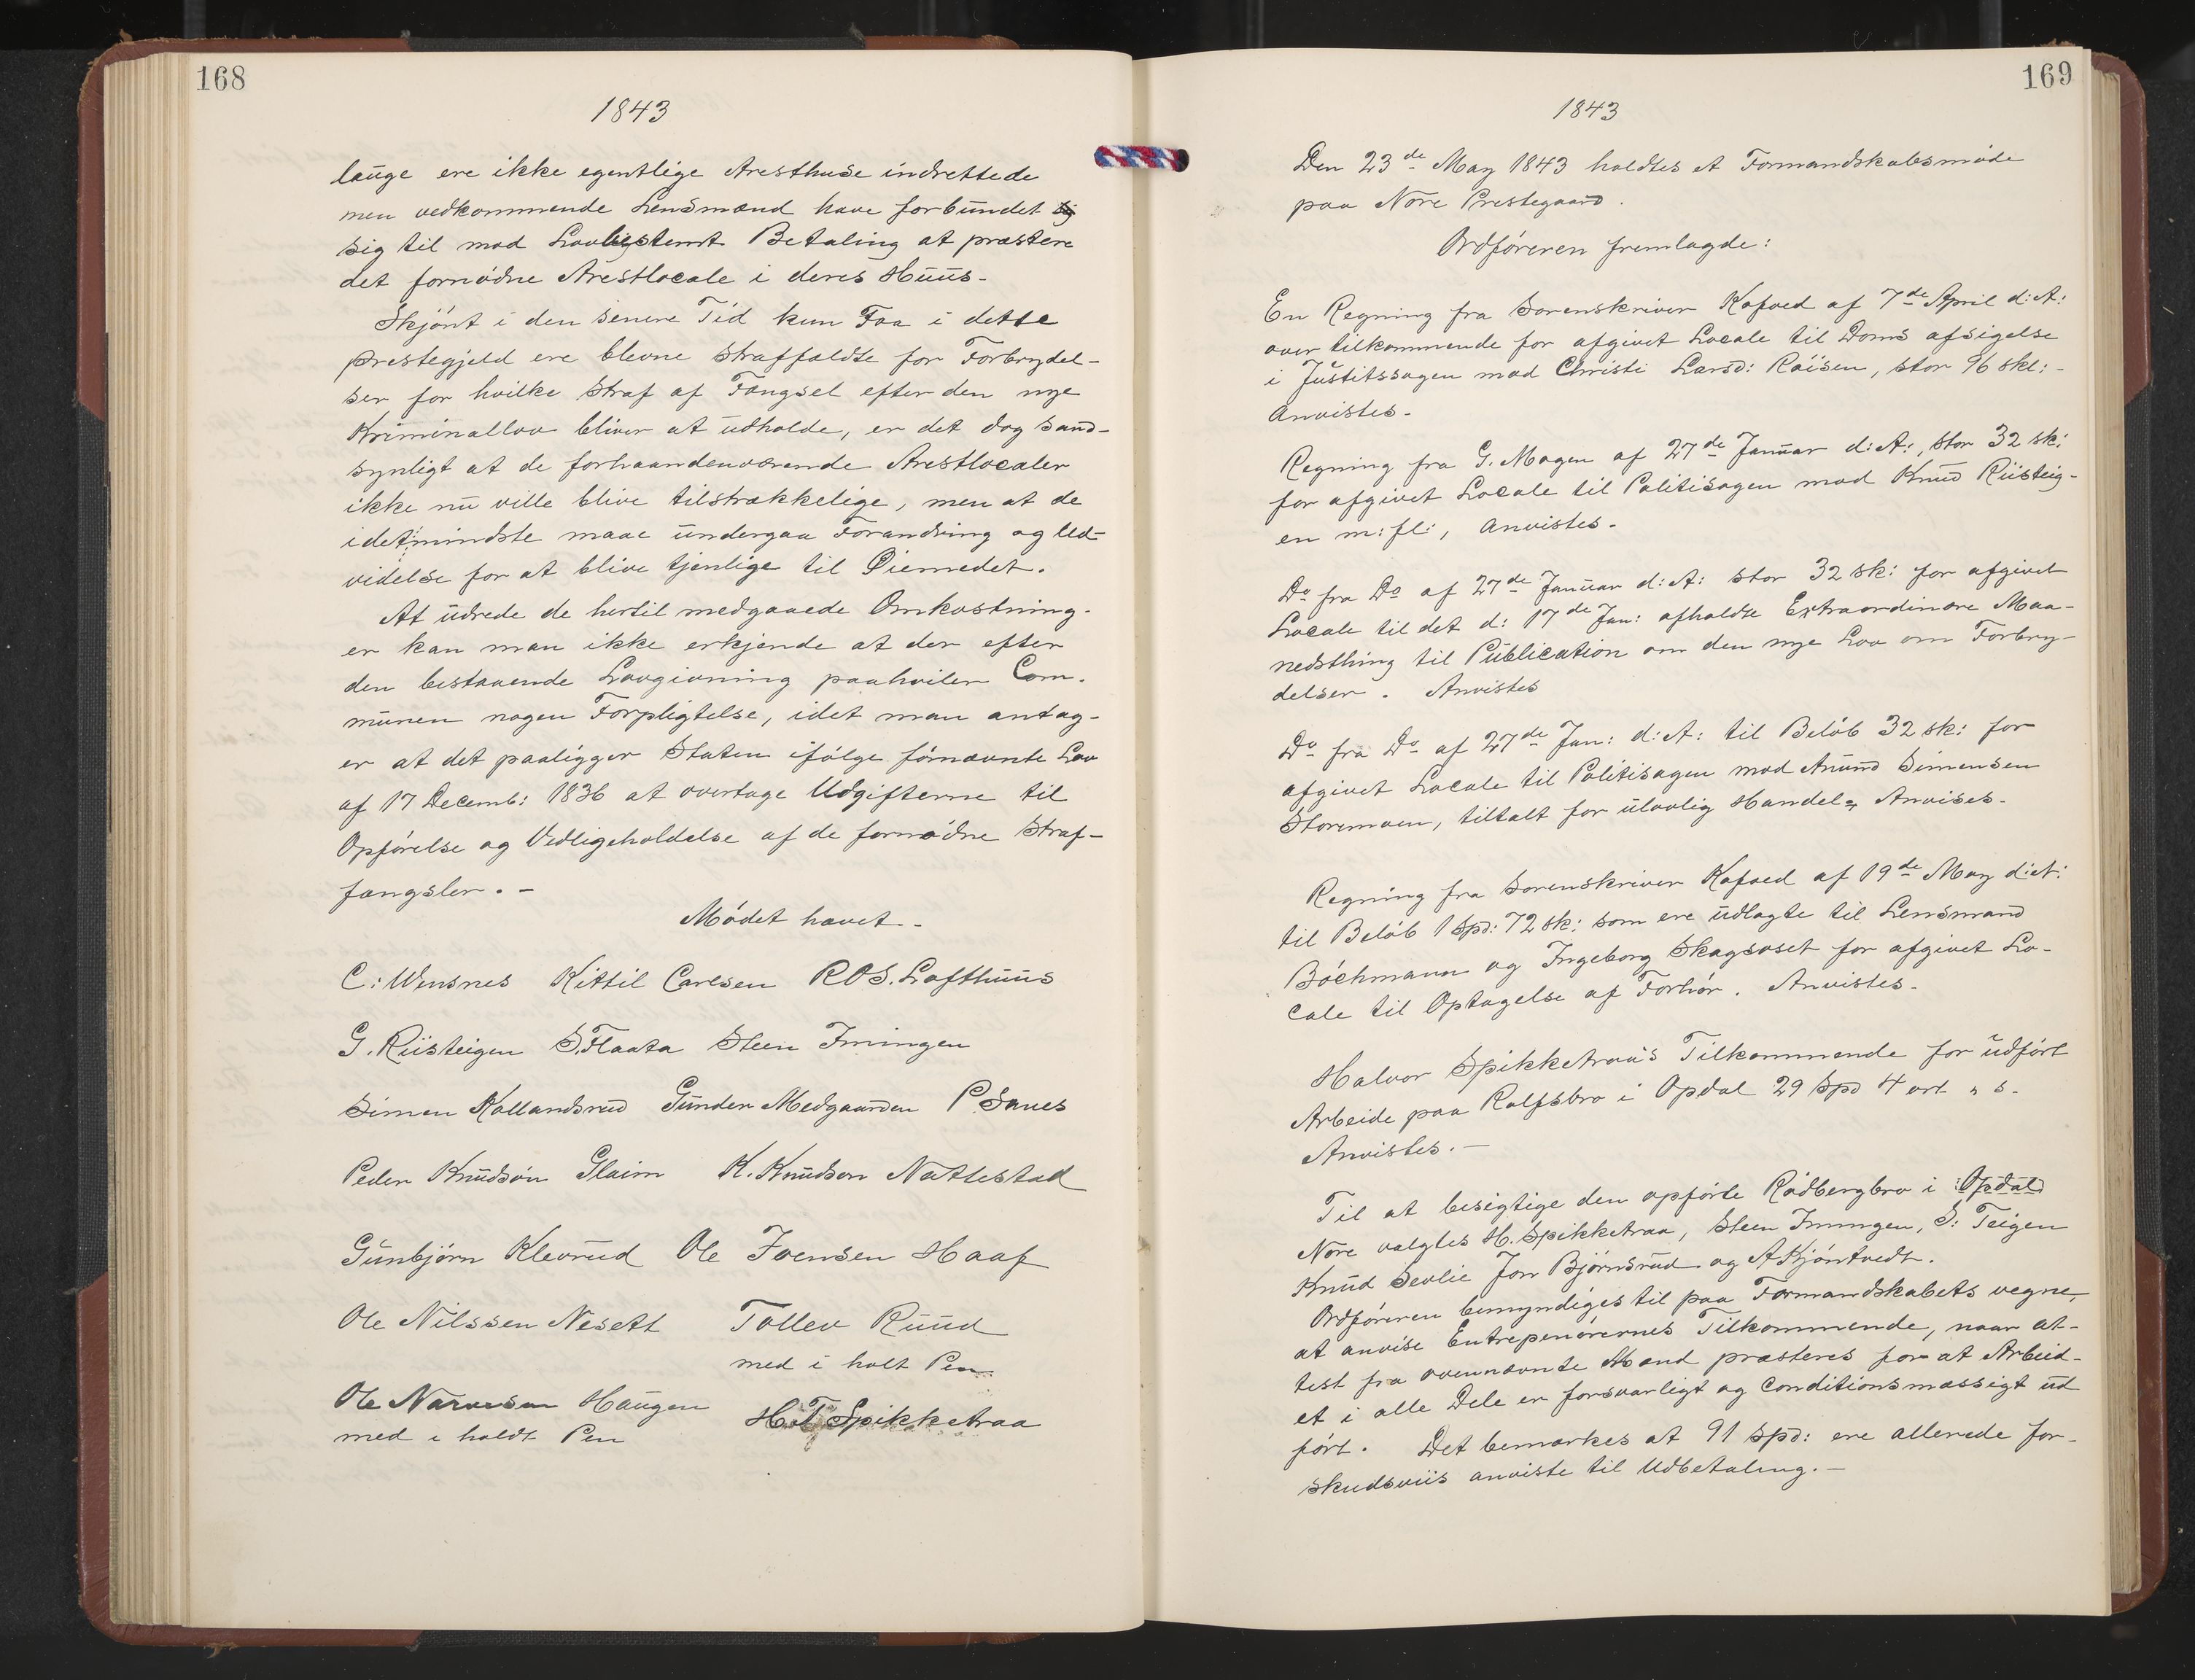 168
1843
lauge ere ikke egentlige Aresthuse indrettede
men vedkommende Lensmænd have forbundet
sig til mod Lovbestemt Betaling at præstere
det fornødne Arestlocale i deres Huus-
Skjønt i den senere Tid kun Faa i dette
præstegjeld ere blevne straffældte for Forbrydel-
ser for hvilke Straf af Fængsel efter den nye
Kriminallov bliver at udholde, er det dog sand-
synligt at de forhaandenværende Arestlocaler
ikke nu ville blive tilstrækkelige, men at de
idetmindste maae undergaa Forandring og Ud-
videlse for at blive tjenlige til Øiemedet.
At udrede de hertil medgaaede Omkostning-
er kan man ikke erkjende at der efter
den bestaaende Lovgivning paahviler Com-
munen nogen Forpligtelse, idet man antag-
er at det paaligger Staten ifølge førnævnte Lov
af 17 Decemb: 1836 at overtage Udgifterne til
Opførelse og Vedligeholdelse af de fornødne Straf-
fængsler. -
Mødet hævet -
C: Wensnes Kittil Carlsen R O S. Lofthuus
G. Riisteigen S. Flaata Steen Imingen
Simen Kollandsrud Gunder Medgaarden P. Sanes
Peder Knudsøn Glaim K. Knudson Nattestad
Gunbjørn Klevrud Ole Joensen Haaf
Ole Nilssen Nesett Tollev Ruud
med i holt Pen
Ole Narvesen Haugen H. T. Spikketraa
med i holdt Pen
169
1843
Den 23de May 1843 holdtes et Formandskabsmøde
paa Nore Prestegaard.
Ordføreren fremlagde:
En Regning fra Sorenskriver Kofoed af 7de April d: A:
over tilkommende for afgivet Locale til Doms afsigelse
i Justitssagen mod Christi Larsd: Røisen, stor 96 skl: -
Anvistes -
Regning fra G. Mogen af 27de Januar d: A:, stor 32 sk:
for afgivet Locale til Politisagen mod Knud Riisteig-
en m: fl:, Anvistes -
Do fra Do af 27de Januar d: A: stor 32 sk: for afgivet
Locale til det d: 17de Jan: afholdte Extraordinære Maa-
nedsthing til Publication om den nye Lov om Forbry-
delser. Anvistes
Do fra Do af 27de Jan: d: A: til Beløb 32 sk: for
afgivet Locale til Politisagen mod Anund Simensen
Storemoen, tiltalt for ulovlig Handel, Anvises -
Regning fra Sorenskriver Kofoed af 19de May d: A:
til Beløb 1 Spd: 72 sk: som ere udlagte til Lensmand
Bøchmann og Ingeborg Skagsoset for afgivet Lo-
cale til Optagelse af Forhør. Anvistes -
Halvor Spikketraas Tilkommende for udført
Arbeide paa Rolfsbro i Opdal 29 Spd 4 ort " s.
Anvistes. -
Til at besigtige den opførte Rødbergbro i Opdal
Nore valgtes H. Spikketraa, Steen Imingen, S: Teigen
Knud Sevlie Jon Bjørnsrud og A Kjøntvedt.
Ordføreren bemyndiges til paa Formandskabets vegne,
at anvise Entrepenørernes Tilkommende, naar at-
test fra ovennævnte Mænd præsteres for at Arbeid-
et i alle Dele er forsvarligt og Conditionsmæssigt ud
ført. Det bemærkes at 91 Spd: ere allerede for-
skudsviis anviste til Udbetaling. -